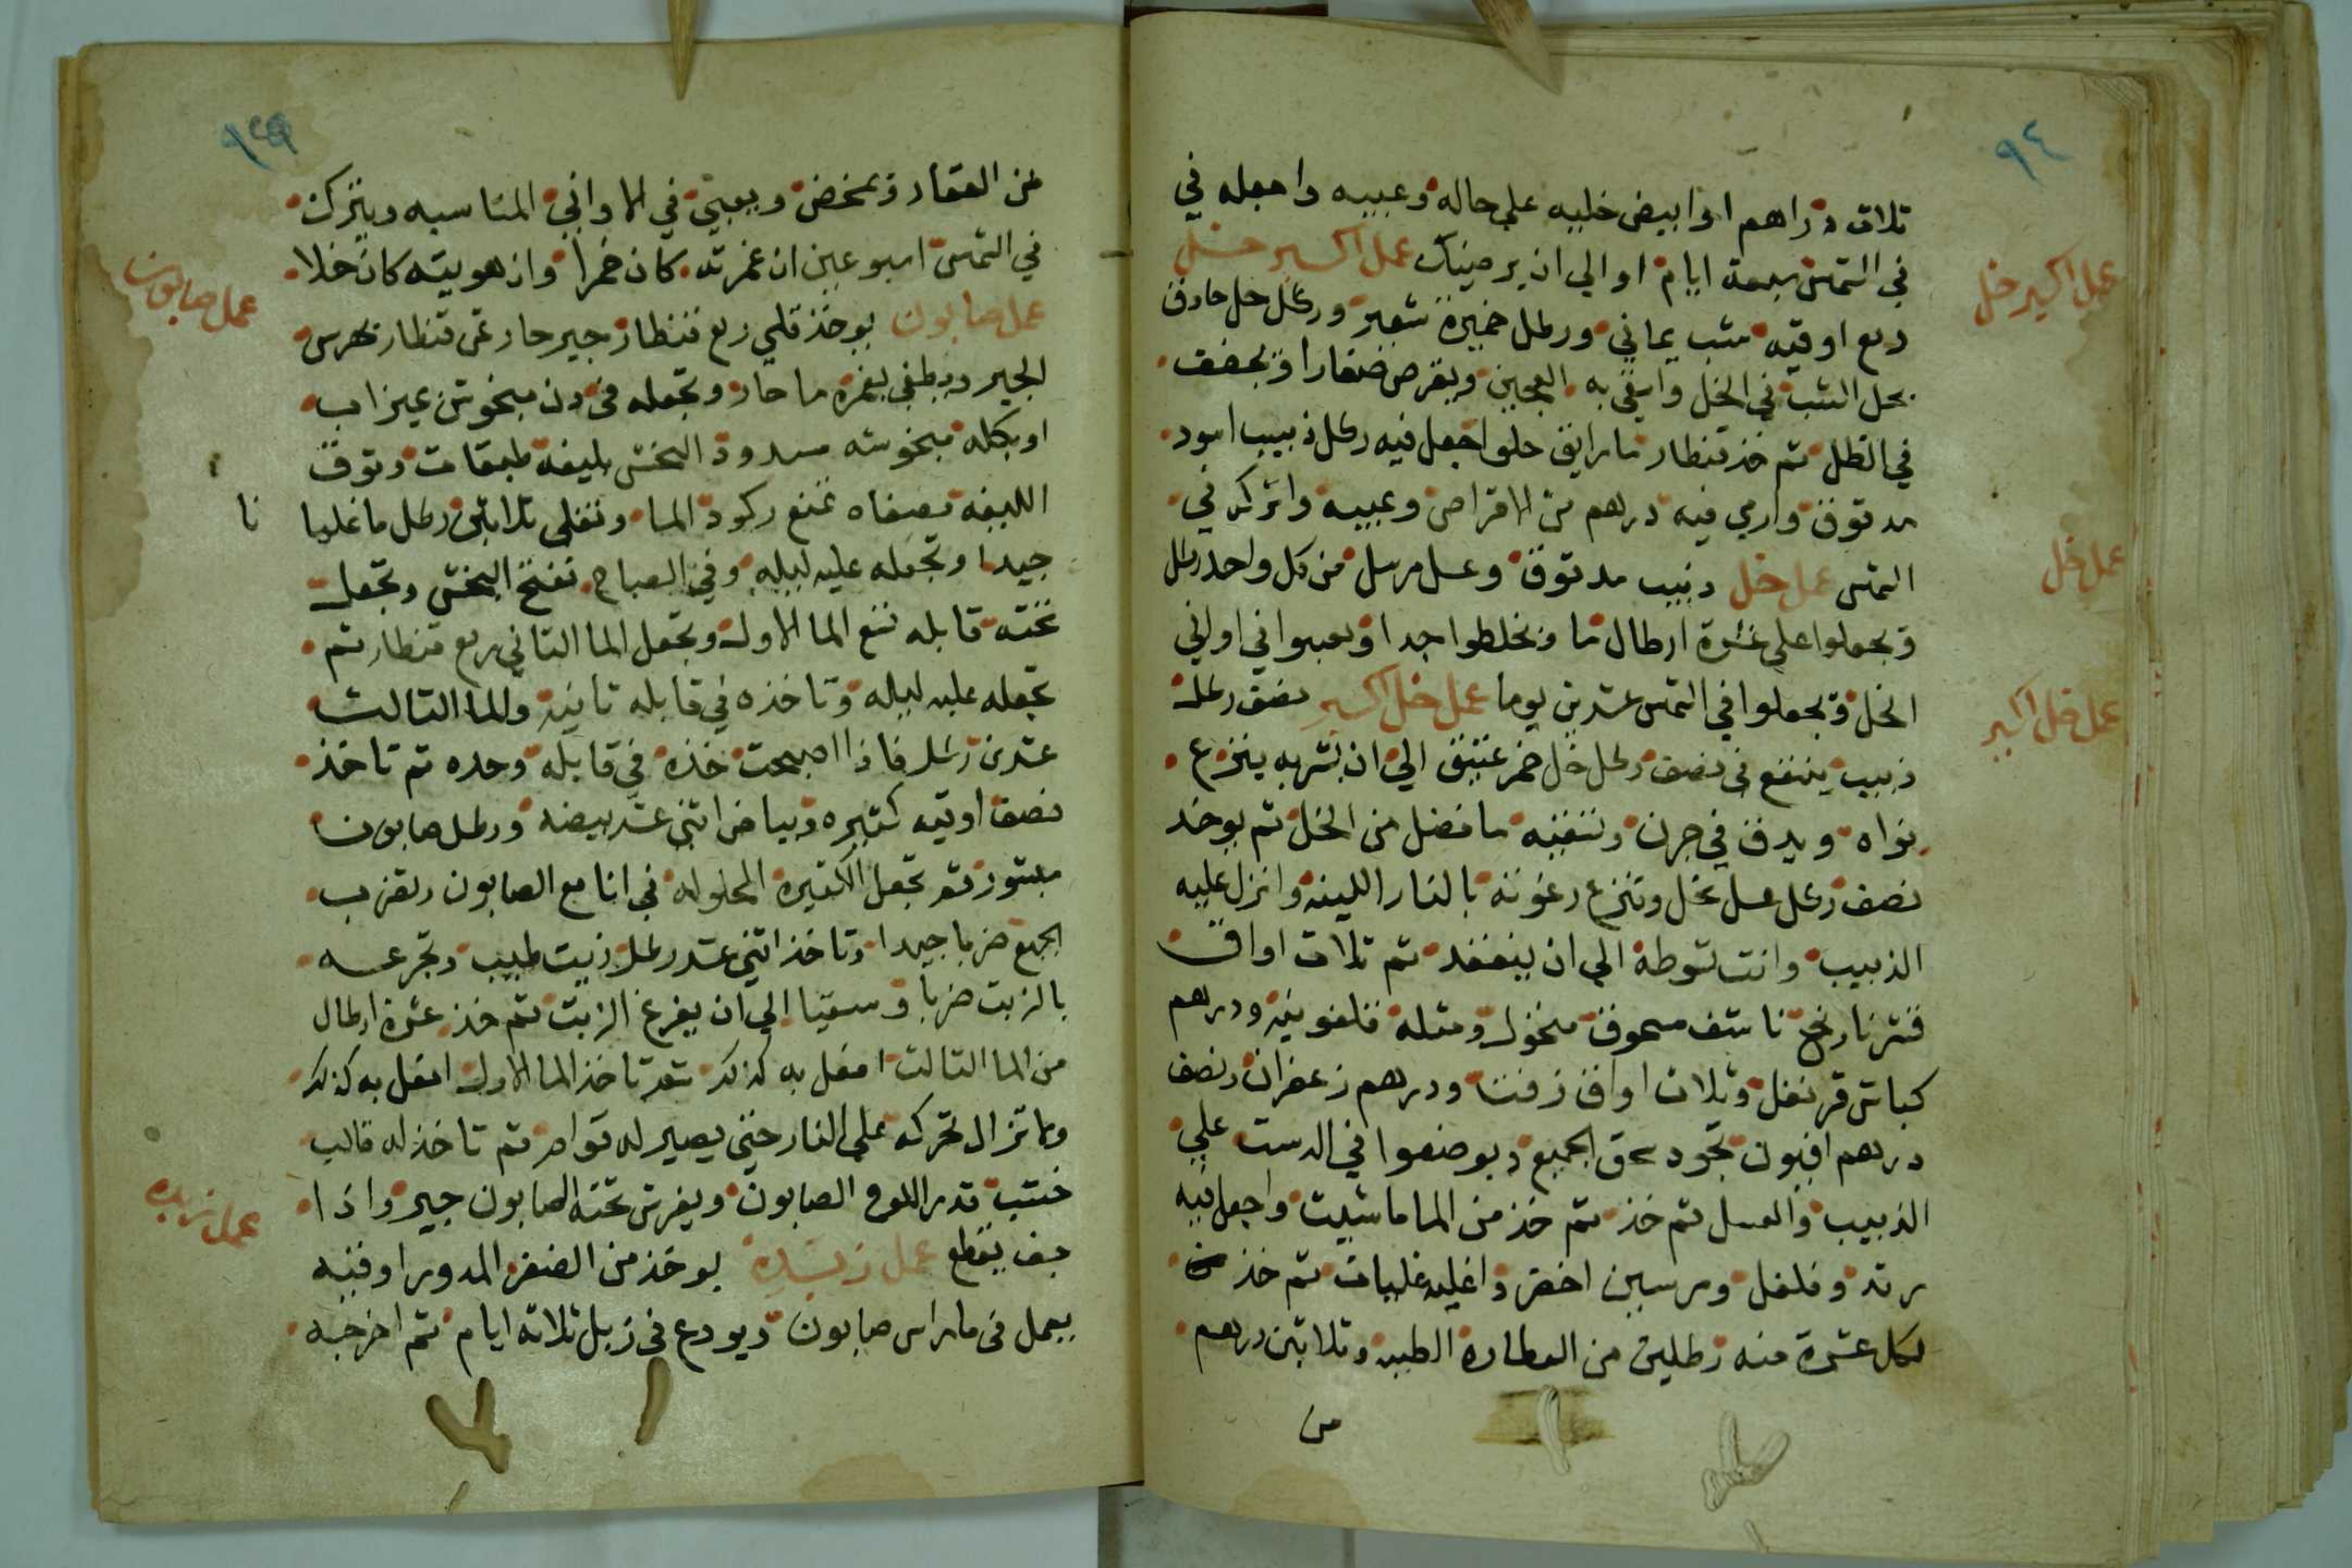 ٩٤
ثلاث دراهم اذا ابيض خليه على حاله وعبيه واجعله في
في الشمس سبعة ايام او الي ان يرضيك عمل اكسير خل
عمل اكسير خل
ربع اوقيه شب يماني ورطل خميرة شعير ورطل خل حادق
بحل الشب في الخل واسقي به العجين ويقرص صغارا ويجفف
في الظل ثم خذ قنطار ما رايق حلو اجعل فيه رطل زبيب اسود
مدقوق وارمي فيه درهم من الاقراص وعبيه واتركه في
الشمس عمل خل زبيب مدقوق وعسل مرسل من كل واحد رطل
عمل خل
ويجعلوا علي عشرة ارطال ما ويخلطوا جيدا ويعبوا في اواني
الخل ويجعلوا في الشمس عشرين يوما عمل خل اكسير نصف رطل
عمل خل اكسير
زبيب ينقع في نصف رطل خل خمر عتيق الي ان يشربه ينزع
نواه ويدق في جرن وتسقيه ما فضل من الخل ثم يوخذ
نصف رطل عسل نحل وتنزع رغوته بالنار اللينه وانزل عليه
الزبيب وانت تسوطه الي ان ينعقد ثم ثلاث اواق
قشر نارنج ناشف مسحوق منخول ومثله قلفونيه ودرهم
كباش قرنفل وثلاث اواق زفت ودرهم زعفران ونصف
درهم افيون تجود سحق الجميع ويوضعوا في الدست علي
الزبيب والعسل ثم خذ ثم خذ من الما ما شيت واجعل فيه
رند وفلفل ومرسين اخضر واغليه غليات ثم خذ
لكل عشرة منه رطلين من العطاره الطيبه وثلاثين درهم
من
٩٥
من العقار ويمخض ويعبي في الاواني المناسبه ويترك
في الشمس اسبوعين ان غمرته كان خمرا وان هويته كان خلا
عمل صابون يوخذ قلي ربع قنطار جير حار ثمن قنطار يهرس
عمل صابون
الجير ويطفي بغمره ما حار وتجعله في دن مبخوش بميزاب
او بكله مبخوشه مسدودة البخش بليفه طبقات وتوق
الليفه مصفاه تمنع ركود الما وتغلي ثلاثين رطل ما غليا
نا
جيدا وتجعله عليه ليله وفي الصباح تفتح البخش وتجعل
تحته قابله تنع الما الاول وتجعل الما الثاني ربع قنطار ثم
تجعله عليه ليله وتاخذه في قابله ثانيه والما الثالث
عشرين رطل فاذا اصبحت خذه في قابله وحده ثم تاخذ
نصف اوقيه كتيره وبياض اثني عشر بيضه ورطل صابون
مبشور ثم تجعل الكتيرة المحلوله في انا مع الصابون وتضرب
الجميع ضربا جيدا وتاخذ اثني عشر رطل زيت طيب وتجرعه
بالزيت ضربا وسقيا الي ان يفرغ الزيت ثم خذ عشرة ارطال
من الما الثالث افعل به كذلك ثم تاخذ الما الاول افعل به كذلك
وما تزال تحركه علي النار حتي يصير له قوام ثم تاخذ له قالب
خشب قدر اللوح الصابون ويفرش تحته الصابون جير واذا
جف يقطع عمل زبده يوخذ من الصفر المدور اوقيه
عمل زبده
يعمل في ما راس صابون ويودع في زبل ثلاثة ايام ثم اخرجه